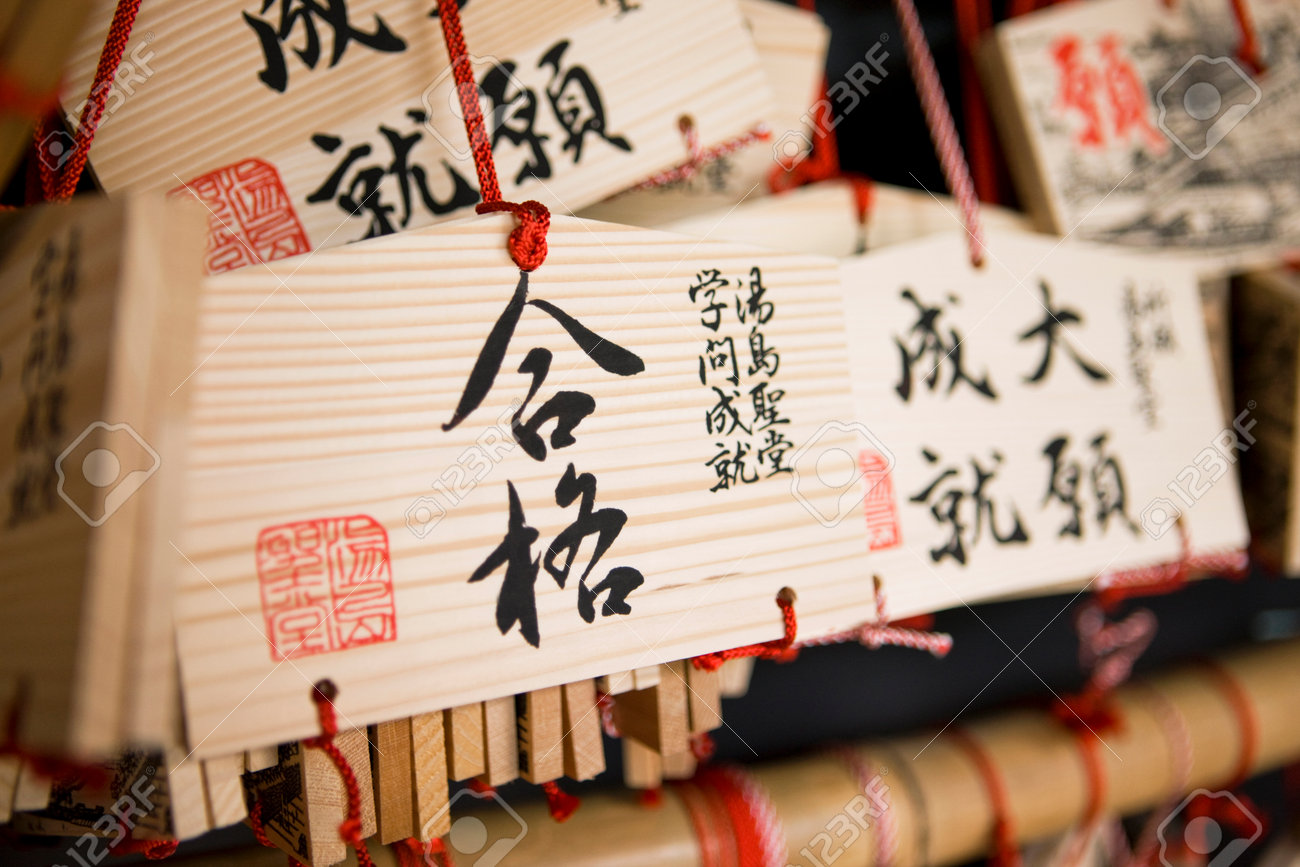 成
就
願
願
合格
湯島聖堂
学問成就
湯島聖堂
大願
成就
123RF
123RF
123RF
123RF
123RF
123RF
123RF
123RF
123RF